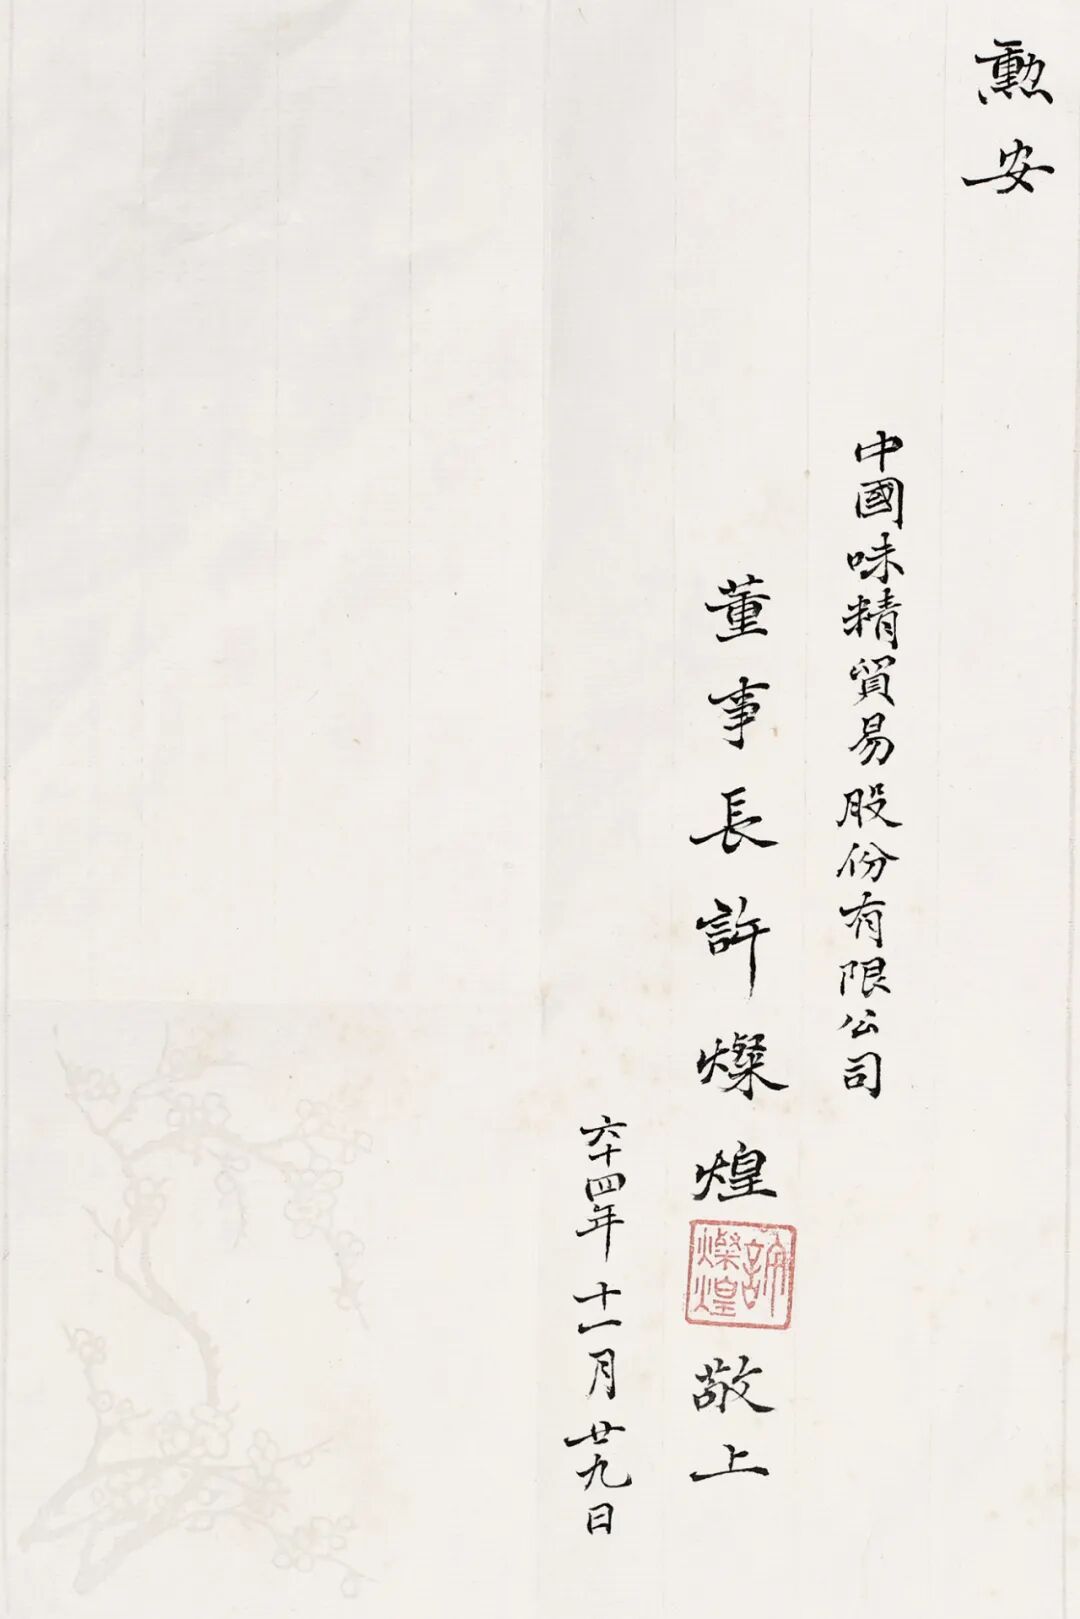 勳安
中國味精貿易股份有限公司
董事長許燦煌敬上
許燦煌
六十四年十一月廿九日